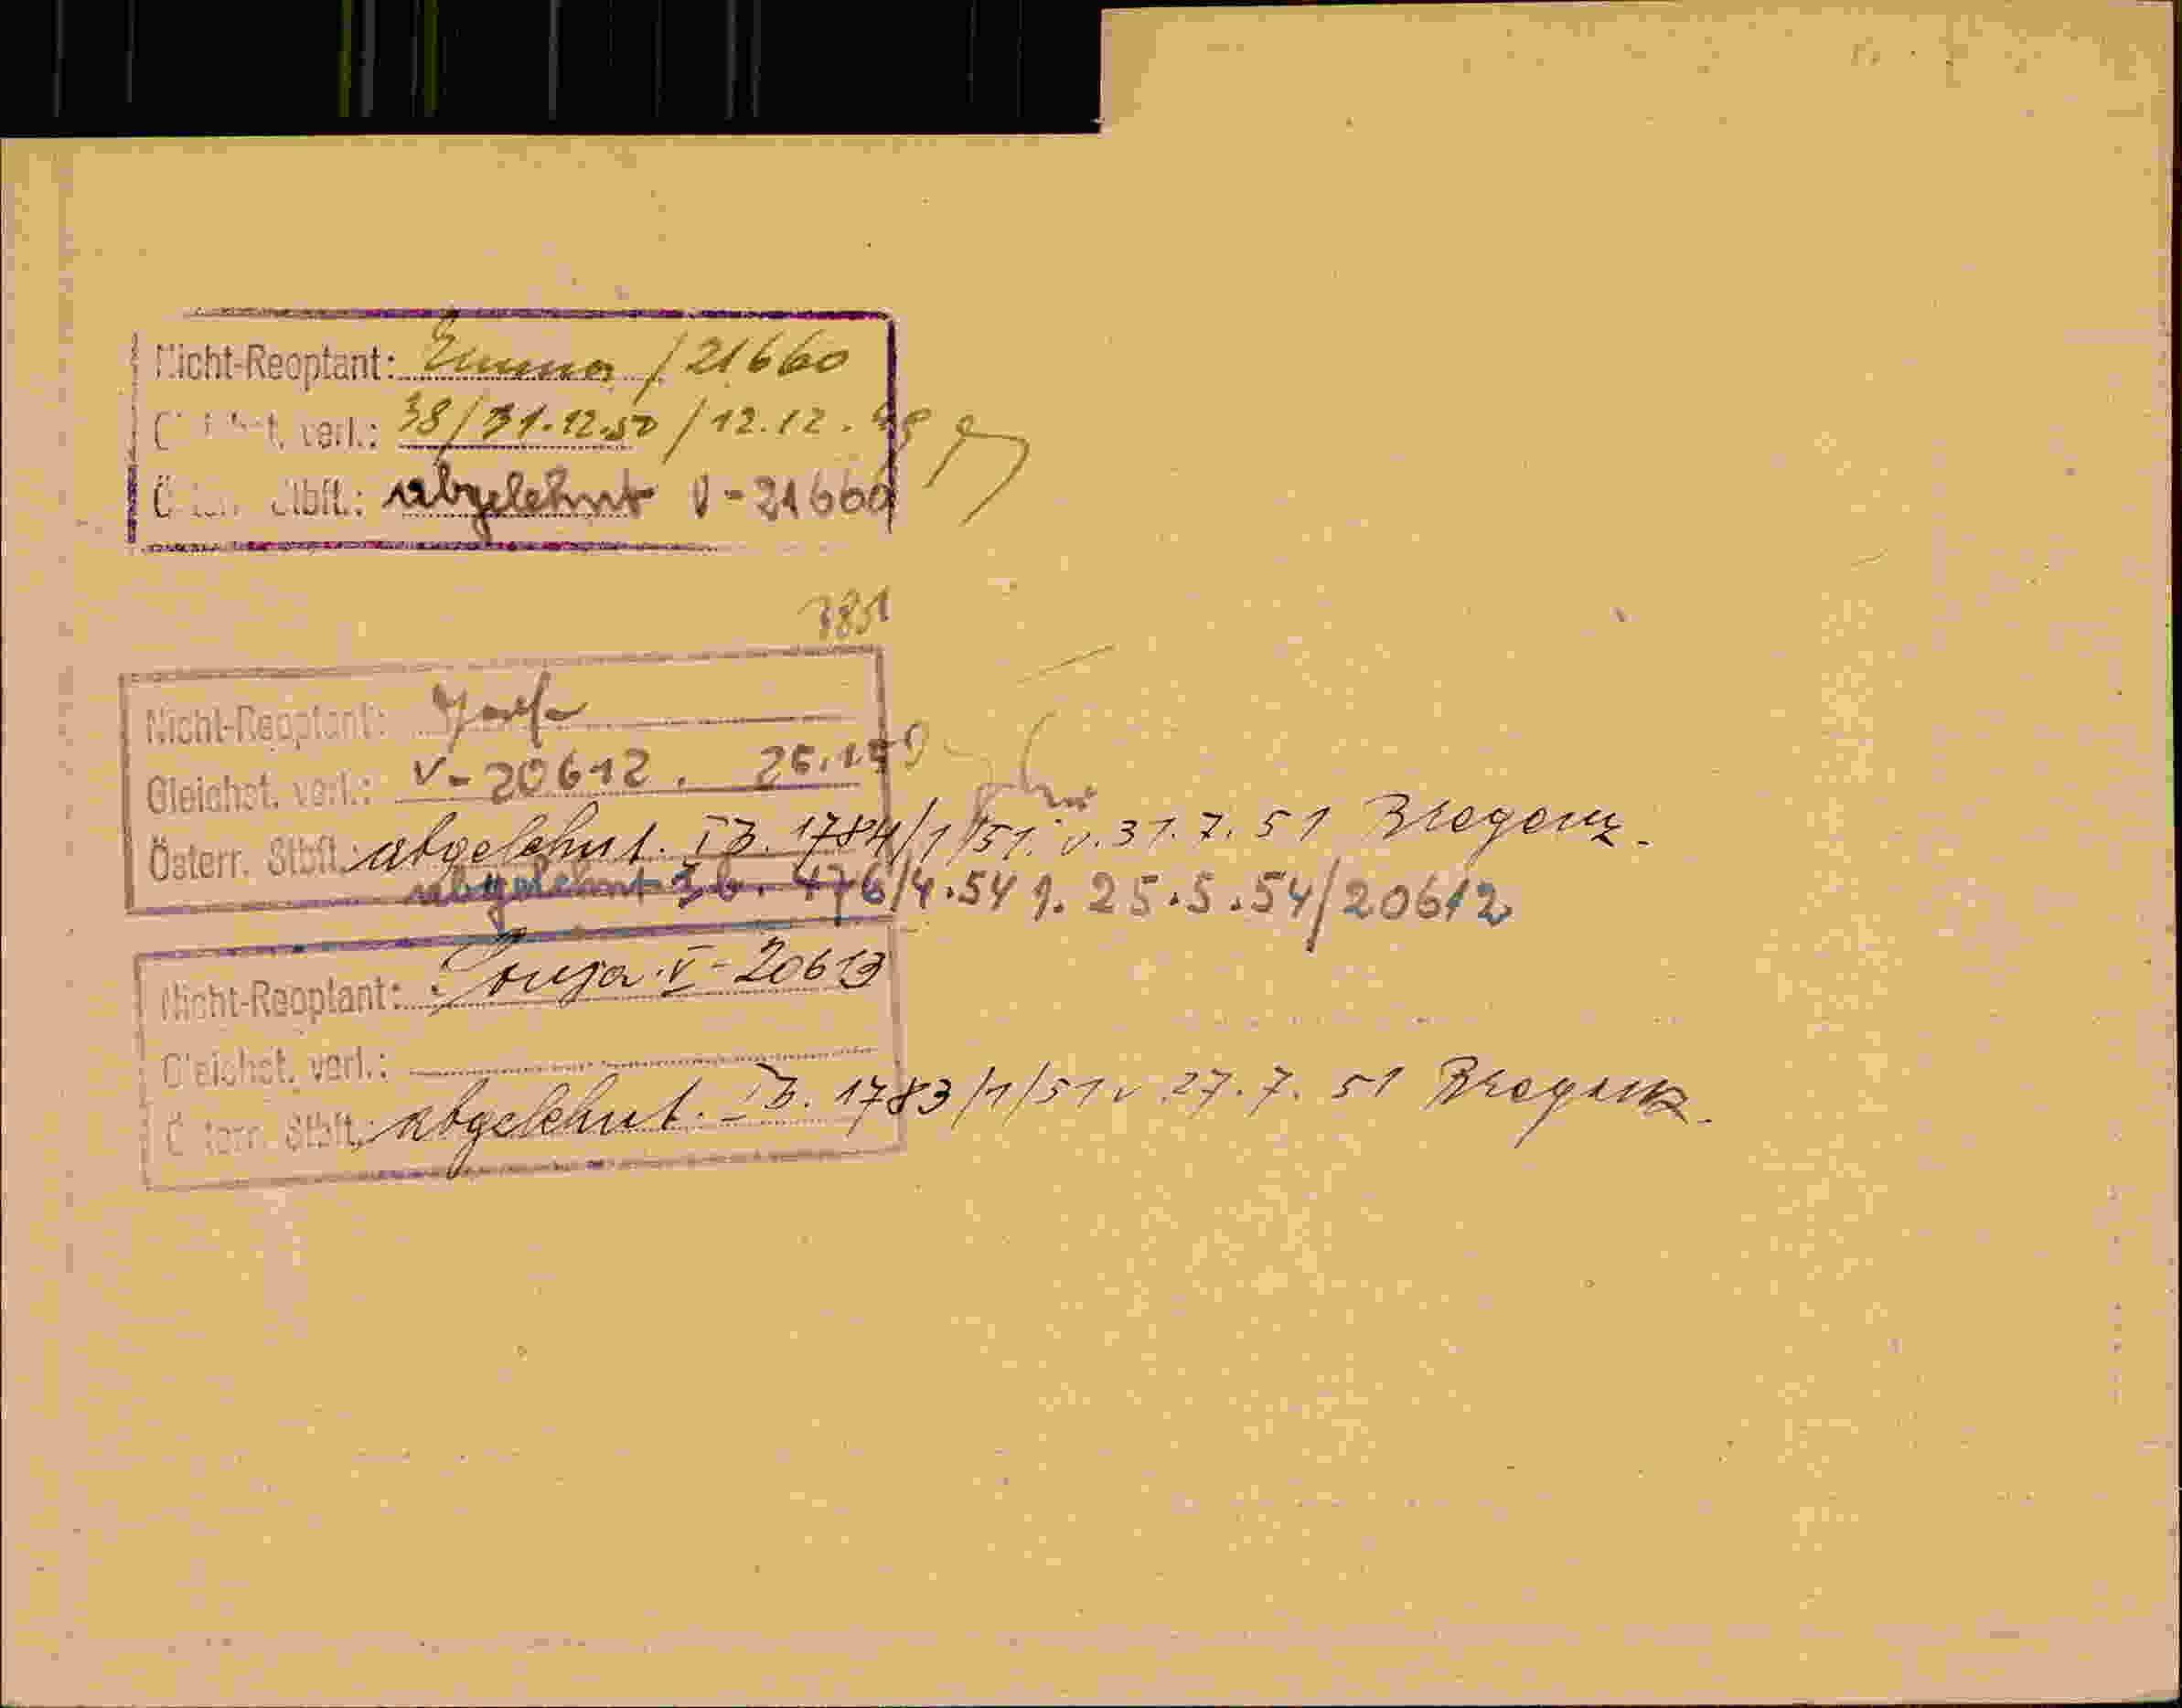 Nicht-Reoptant: Emma / 21660
Gleichst. verl.: 38/31.12.50 / 12.12.
Österr. Stbft.: abgelehnt V-21660
Nicht-Reoptant: Josefa
Gleichst. verl.: V-20612.
Österr. Stbft.: abgelehnt. IB. 1784/1/51. v. 31.7.51 Bregenz.
abgelehnt Ib. 476/4.54 v. 25.5.54/20612
Nicht-Reoptant: Sonja V-20613
Gleichst. verl.:
Österr. Stbft.: abgelehnt. IB. 1783/1/51 v. 27.7.51 Bregenz.